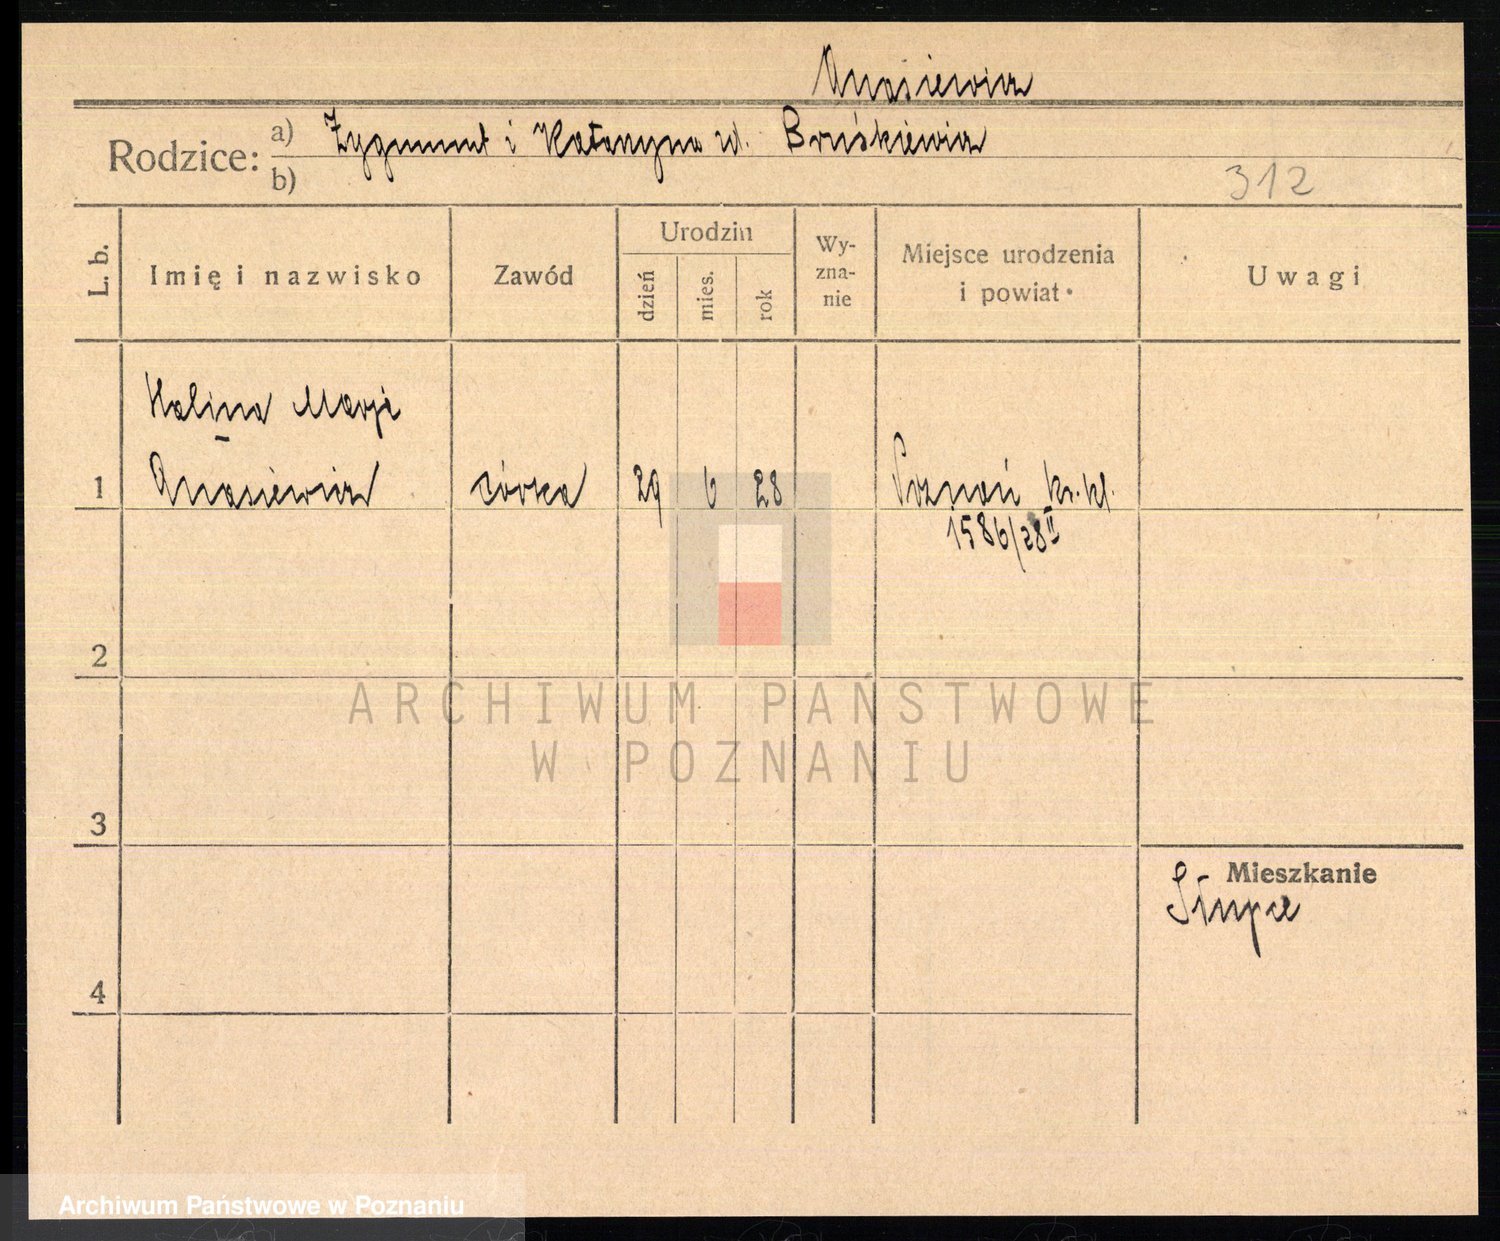 Anasiewicz
Rodzice: a) Zygmunt i Katarzyna ur. Bruśkiewicz
b)
312
L. b. Imię i nazwisko Zawód Urodzin dzień mies. rok Wy-zna-nie Miejsce urodzenia i powiat Uwagi
Halina Marja
1 Anasiewicz córka 29 6 28 Poznań kr. kl.
1586/28 II
2
ARCHIWUM PAŃSTWOWE
W POZNANIU
3
Mieszkanie
Słupca
4
Archiwum Państwowe w Poznaniu